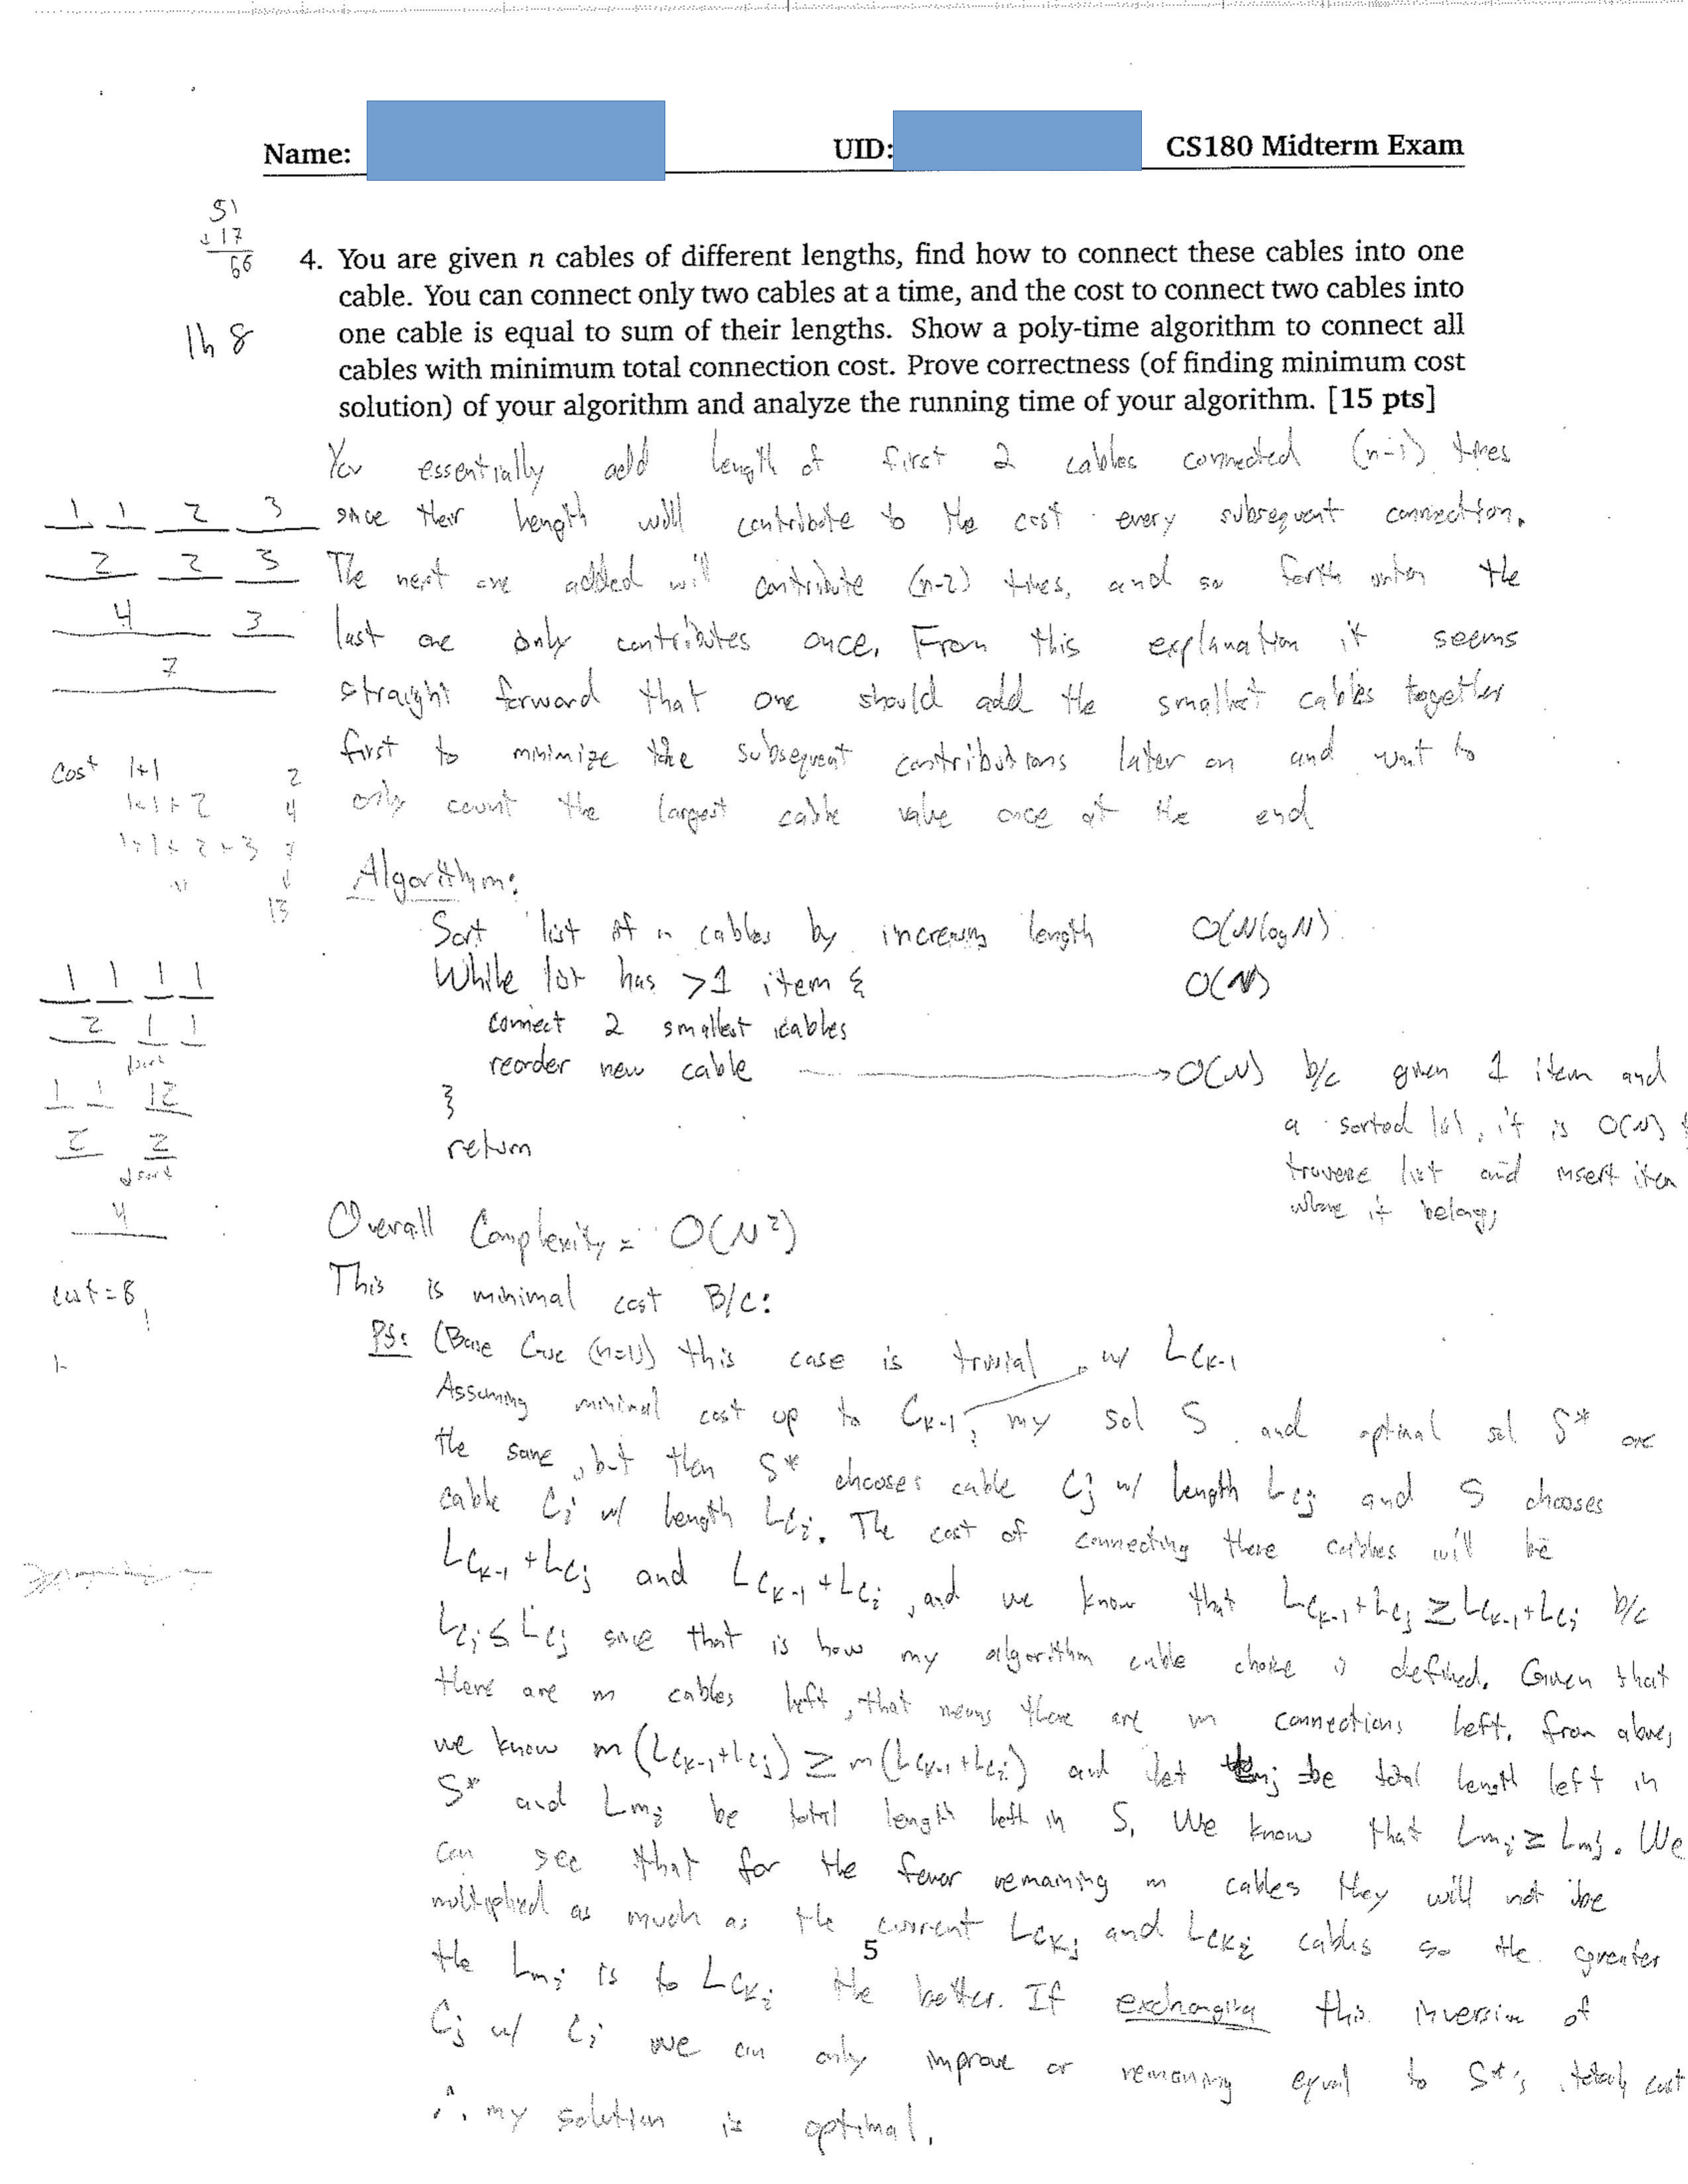 Name:
UID:
CS180 Midterm Exam
51
+17
66
1h 8
4. You are given n cables of different lengths, find how to connect these cables into one
cable. You can connect only two cables at a time, and the cost to connect two cables into
one cable is equal to sum of their lengths. Show a poly-time algorithm to connect all
cables with minimum total connection cost. Prove correctness (of finding minimum cost
solution) of your algorithm and analyze the running time of your algorithm. [15 pts]
You essentially add length of first 2 cables connected (n-1) times
since their length will contribute to the cost every subsequent connection.
The next one added will contribute (n-2) times, and so forth the
last one only contributes once. From this explanation it seems
straight forward that one should add the smallest cables together
first to minimize the subsequent contributions later on and want to
only count the largest cable value once at the end
1 1 2 3
2 2 3
4 3
7
cost 1+1 2
1+1+2 4
1+1+2+3 7
13
1 1 1 1
2 1 1
↓sort
1 1 2
2 2
↓sort
4
cost=8
Algorithm:
Sort list of n cables by increasing length O(NlogN)
While list has >1 item { O(N)
connect 2 smallest cables
reorder new cable → O(N) b/c given 1 item and
a sorted list, it is O(N)
traverse list and insert item
where it belongs
}
return
Overall Complexity = O(N²)
This is minimal cost B/C:
Pf: (Base Case (n=1)) this case is trivial
w/ LCk-1
Assuming minimal cost up to Ck-1, my sol S and optimal sol S* are
the same, but then S* chooses cable Cj w/ length LCj and S chooses
cable Ci w/ length LCi. The cost of connecting these cables will be
LCk-1 + LCj and LCk-1 + LCi, and we know that LCk-1+LCj ≥ LCk-1+LCi b/c
LCi ≤ LCj since that is how my algorithm cable choice is defined. Given that
there are m cables left, that means there are m connections left. from above,
we know m(LCk-1+LCj) ≥ m(LCk-1+LCi) and let be total length left in
S* and Lmi be total length left in S. We know that Lmi ≥ Lmj. We
can see that for the fewer remaining m cables they will not be
multiplied as much as the current LCkj and LCki cables so the greater
the Lmi is to LCki the better. If exchanging this inversion of
Cj w/ Ci we can only improve or remaining equal to S*'s cost
∴ my solution is optimal.
5